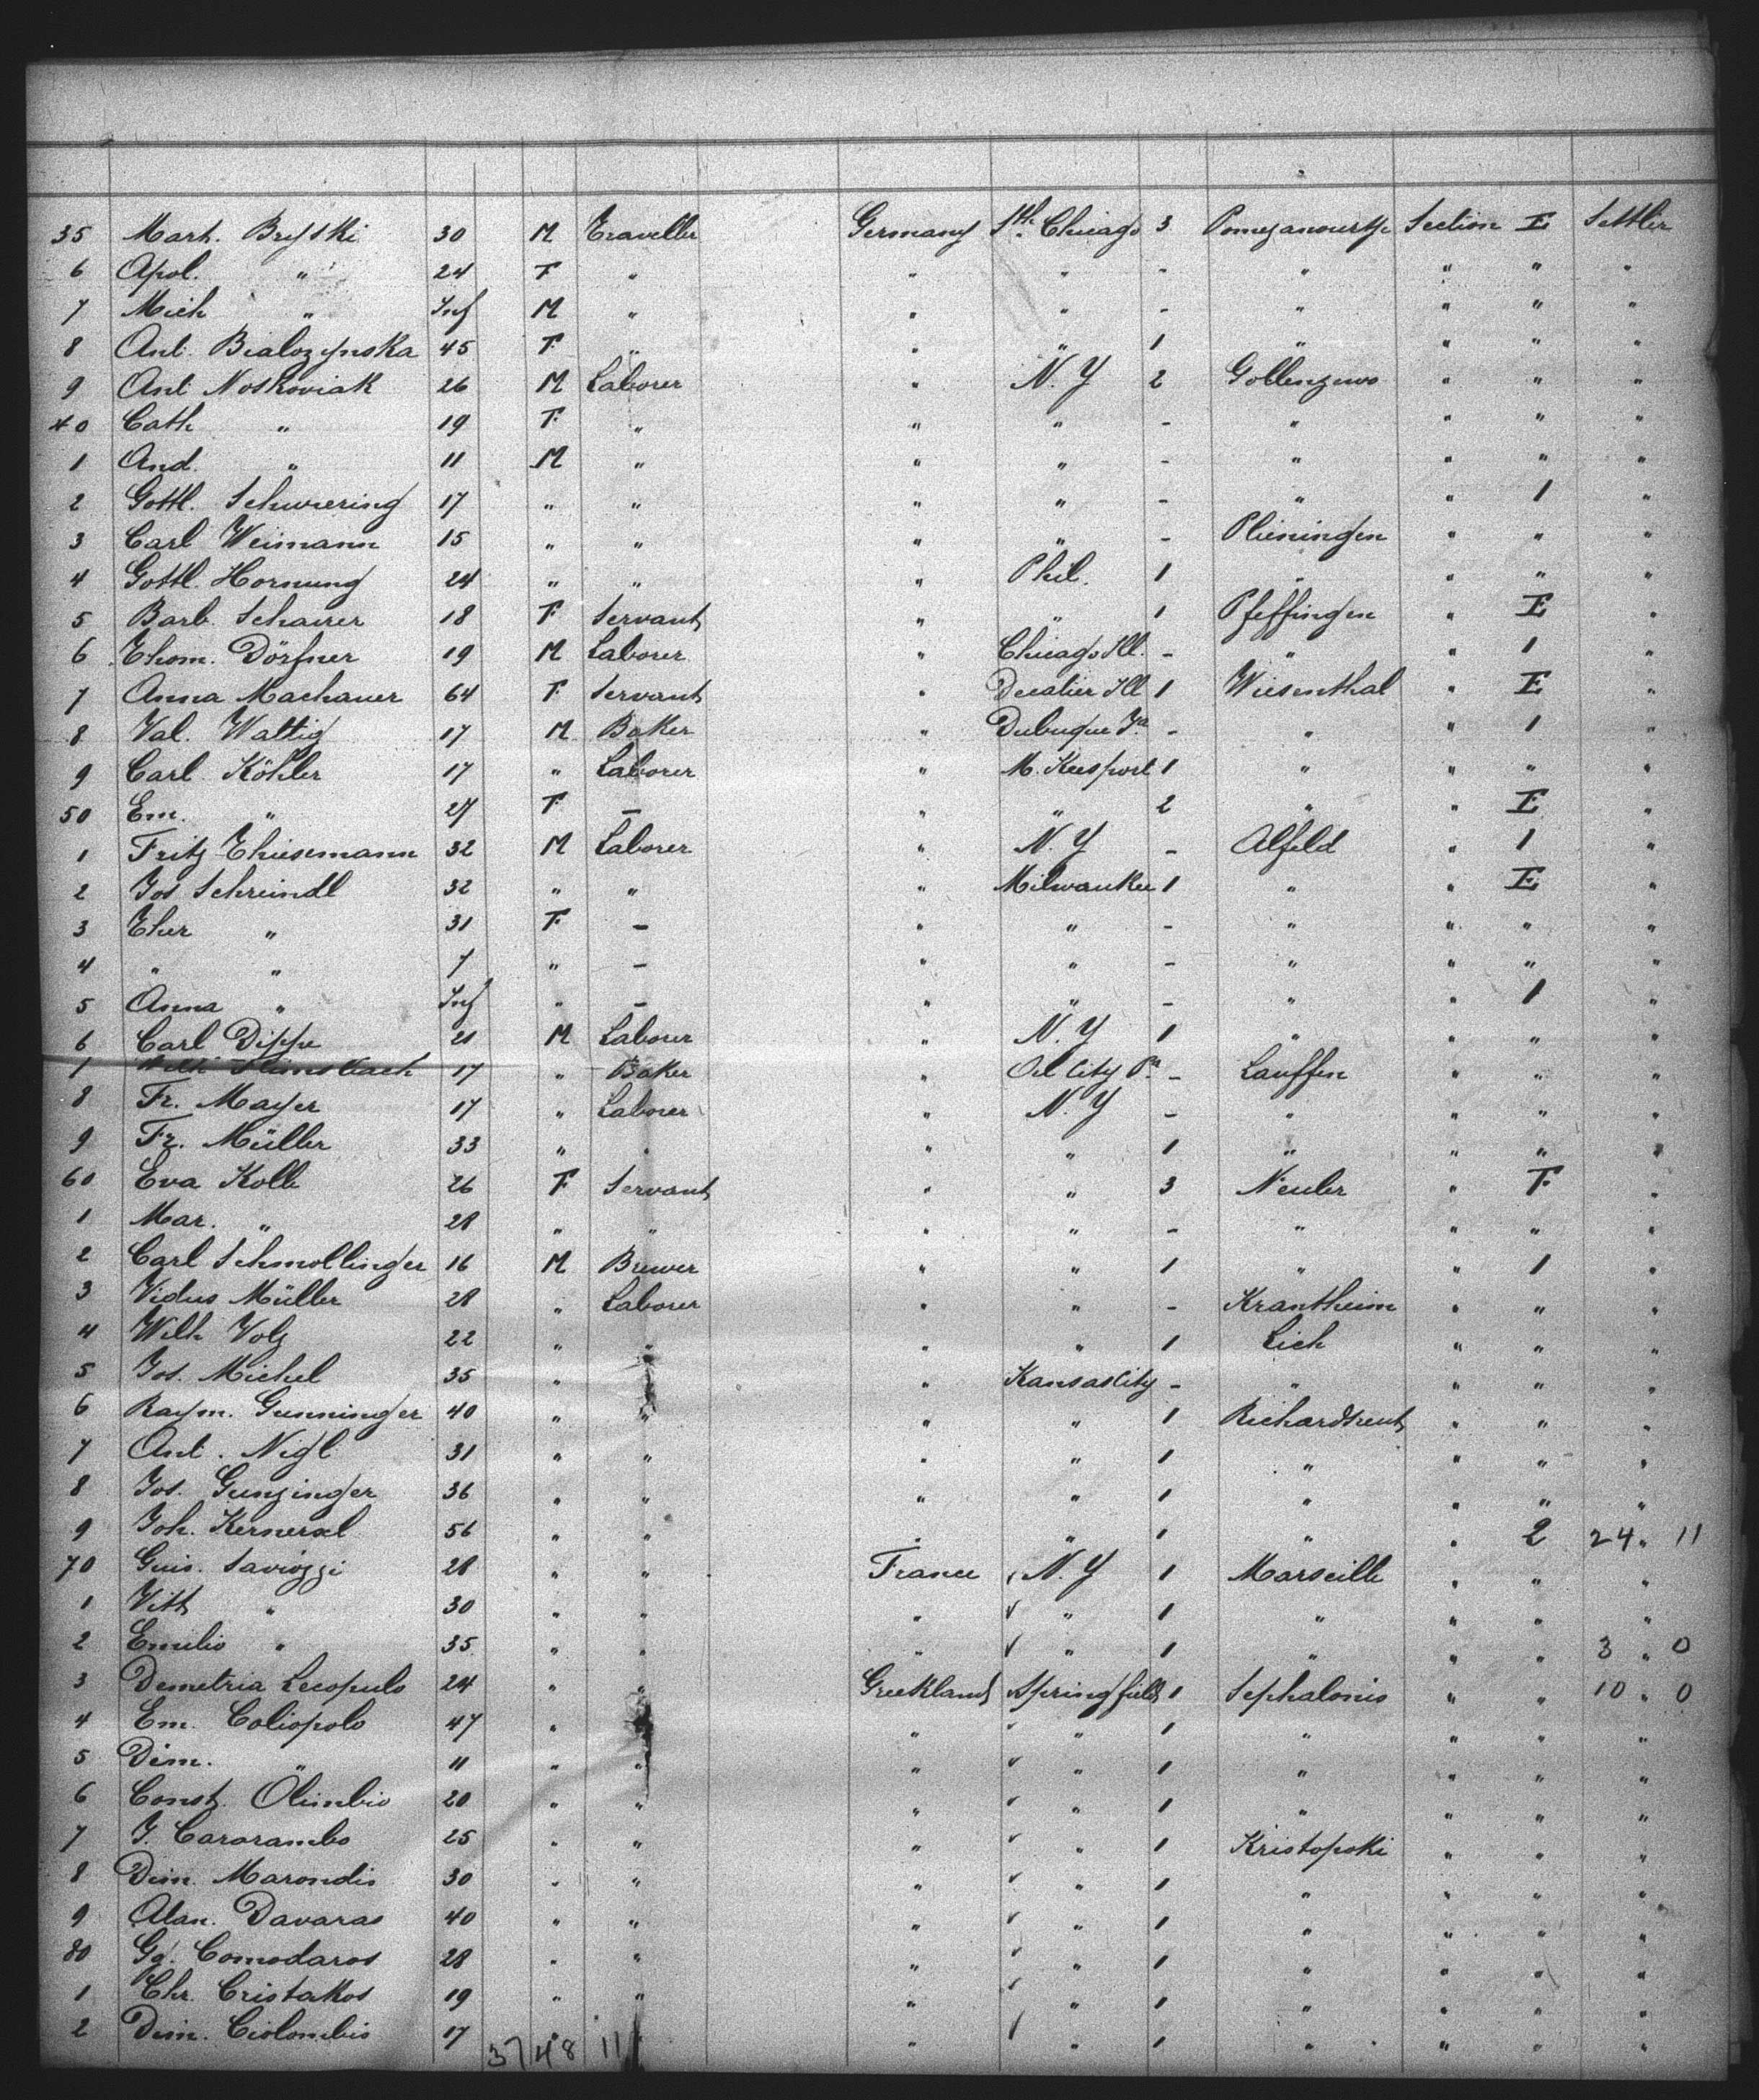 35 Marh. Bryski 30 M Traveller Germany Sth. Chicago 3 Section E Settler
6 Apol. " 24 F " " " - " " " "
7 Mich " Inf M " " " - " " " "
8 Ant. Bialozynska 45 F " " " 1 " " " "
9 Ant Noskoviak 26 M Laborer " N. Y 2 Gollenzewo " " "
40 Cath " 19 F " " " - " " " "
1 And. " 11 M " " " - " " " "
2 Gottl. Schwiering 17 " " " " - " " 1 "
3 Carl Weimann 15 " " " " - Plieningen " " "
4 Gottl. Hornung 24 " " " Phil. 1 " " " "
5 Barb. Schairer 18 F Servant " " 1 Pfeffingen " E "
6 Thom. Dörfner 19 M Laborer " Chicago Ill. - " " 1 "
7 Anna Machauer 64 F Servant " Decatier Ill 1 Wiesenthal " E "
8 Val. Wattig 17 M Baker " Dubuque Ia - " " 1 "
9 Carl Köhler 17 " Laborer " M. Keesport 1 " " " "
50 Em. " 27 F - " " 2 " " E "
1 Fritz Thiesemann 32 M Laborer " N. Y - Alfeld " 1 "
2 Jos Schreindl 32 " " " Milwaukee 1 " " E "
3 Ther " 31 F - " " - " " " "
4 " " 7 " - " " - " " " "
5 Anna " Inf " - " " - " " 1 "
6 Carl Dippe 21 M Laborer " N. Y 1 " " " "
7 Wilh 17 " Baker " Oil City Pa - Lauffen " " "
8 Fr. Mayer 17 " Laborer " N. Y - " " " "
9 Fr. Müller 33 " " " " 1 " " " "
60 Eva Kolb 26 F Servant " " 3 Neuler " F "
1 Mar. " 28 " " " " - " " " "
2 Carl Schmollinger 16 M Brewer " " 1 " " 1 "
3 Vidus Müller 28 " Laborer " " - Krantheim " " "
4 Wilh Volz 22 " " " " 1 Lich " " "
5 Jos. Michel 35 " " " Kansas City - " " " "
6 Raym. Gunninger 40 " " " " 1 Richardsreut " " "
7 Ant. Nigl 31 " " " " 1 " " " "
8 Jos. Gunzinger 36 " " " " 1 " " " "
9 Joh. Kernersel 56 " " " " 1 " " 2 24 " 11
70 Guis. Saviozzi 28 " " France N. Y 1 Marseille " " "
1 Vitt " 30 " " " " 1 " " " "
2 Emilio " 35 " " " " 1 " " " 3 " 0
3 Demetria Lecopulo 24 " " Greekland Springfield 1 Sephalonio " " 10 " 0
4 Em. Coliopolo 47 " " " " 1 " " " "
5 Dim. " 11 " " " " 1 " " " "
6 Const. Olimbio 20 " " " " 1 " " " "
7 J. Cararambo 25 " " " " 1 Kristopoki " " "
8 Dim. Marondis 30 " " " " 1 " " " "
9 Atan. Davaras 40 " " " " 1 " " " "
80 Gg. Comodaros 28 " " " " 1 " " " "
1 Chr. Cristakos 19 " " " " 1 " " " "
2 Dim. Ciolombis 17 " " " 1 " " " "
37 48 11